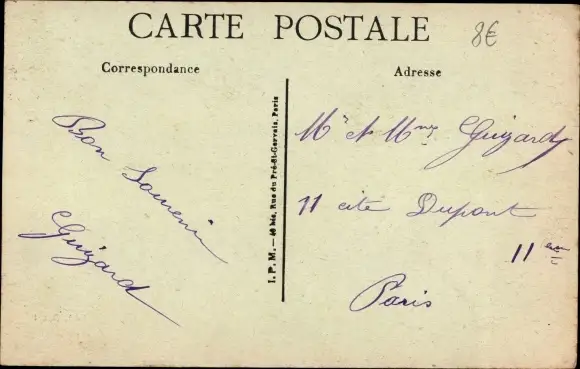 CARTE POSTALE
8€
Correspondance
Adresse
Bon Souvenir
Guizard
I. P. M. — 40 bis, Rue du Pré-St-Gervais, Paris
Mr et Mme Guizard
11 cité Dupont
11 em
Paris